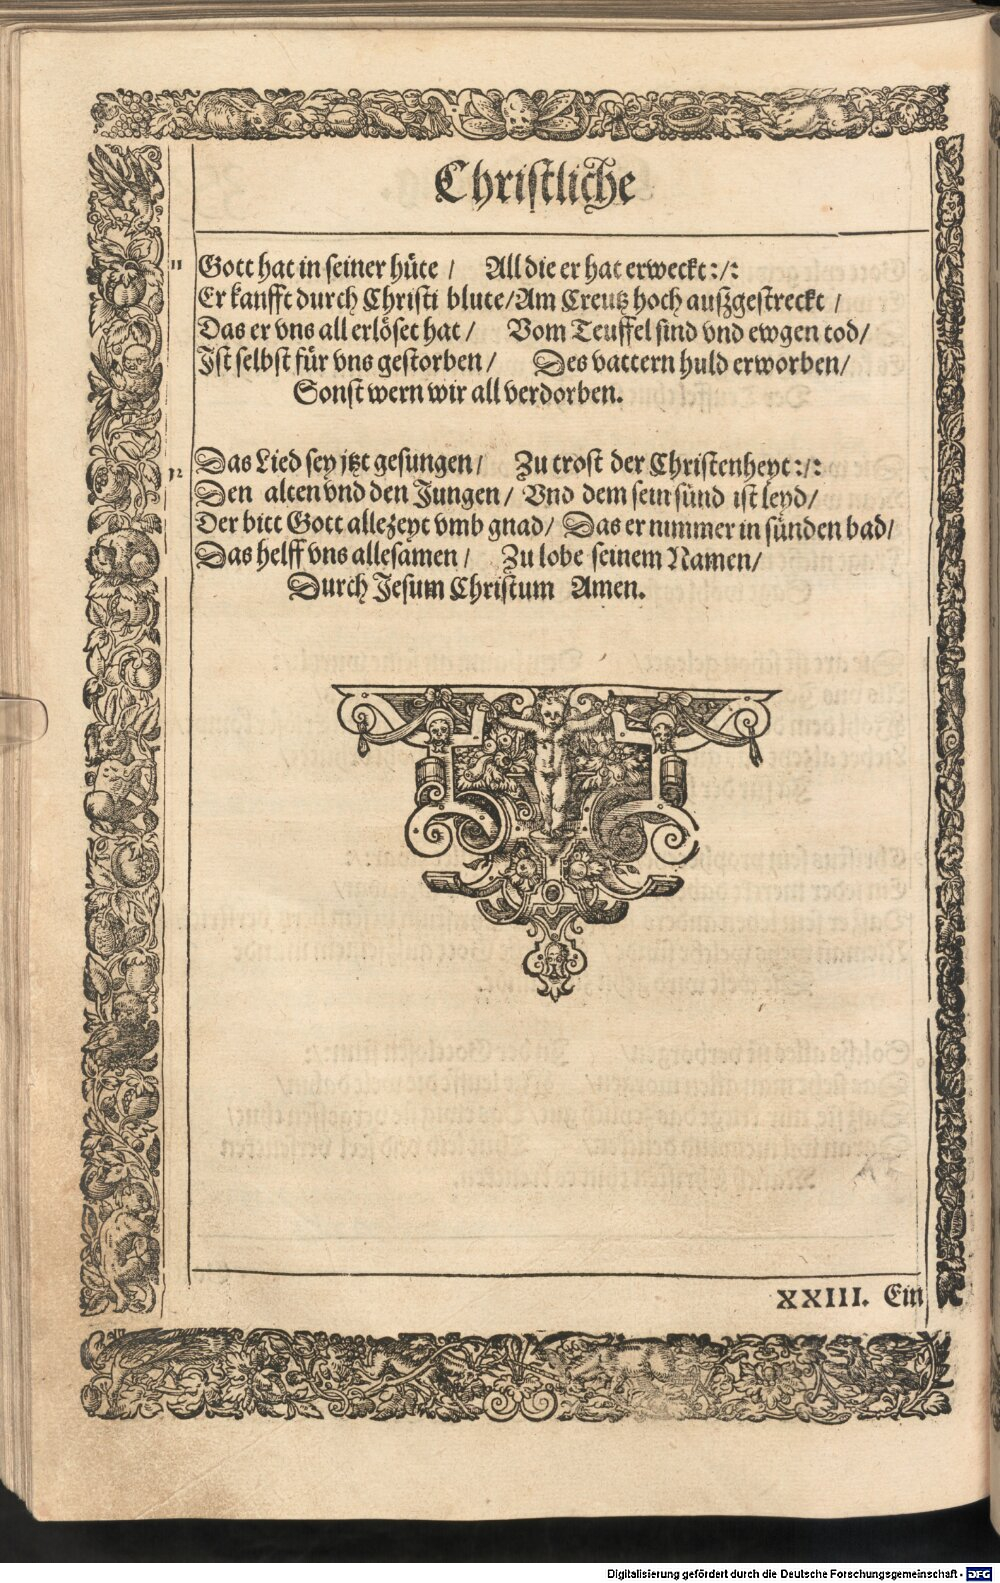 Christliche
11 Gott hat in seiner hüte / All die er hat erweckt :/:
Er kaufft durch Christi blute / Am Creutz hoch außgestreckt /
Das er vns all erlöset hat / Vom Teuffel sünd vnd ewgen tod /
Ist selbst für vns gestorben / Des vattern huld erworben /
Sonst wern wir all verdorben.
12 Das Lied sey jtzt gesungen / Zu trost der Christenheyt :/:
Den alten vnd den Jungen / Vnd dem sein sünd ist leyd /
Der bitt Gott allezeyt vmb gnad / Das er nimmer in sünden bad /
Das helff vns allesamen / Zu lobe seinem Namen /
Durch Jesum Christum Amen.
XXIII. Ein
Digitalisierung gefördert durch die Deutsche Forschungsgemeinschaft - DFG